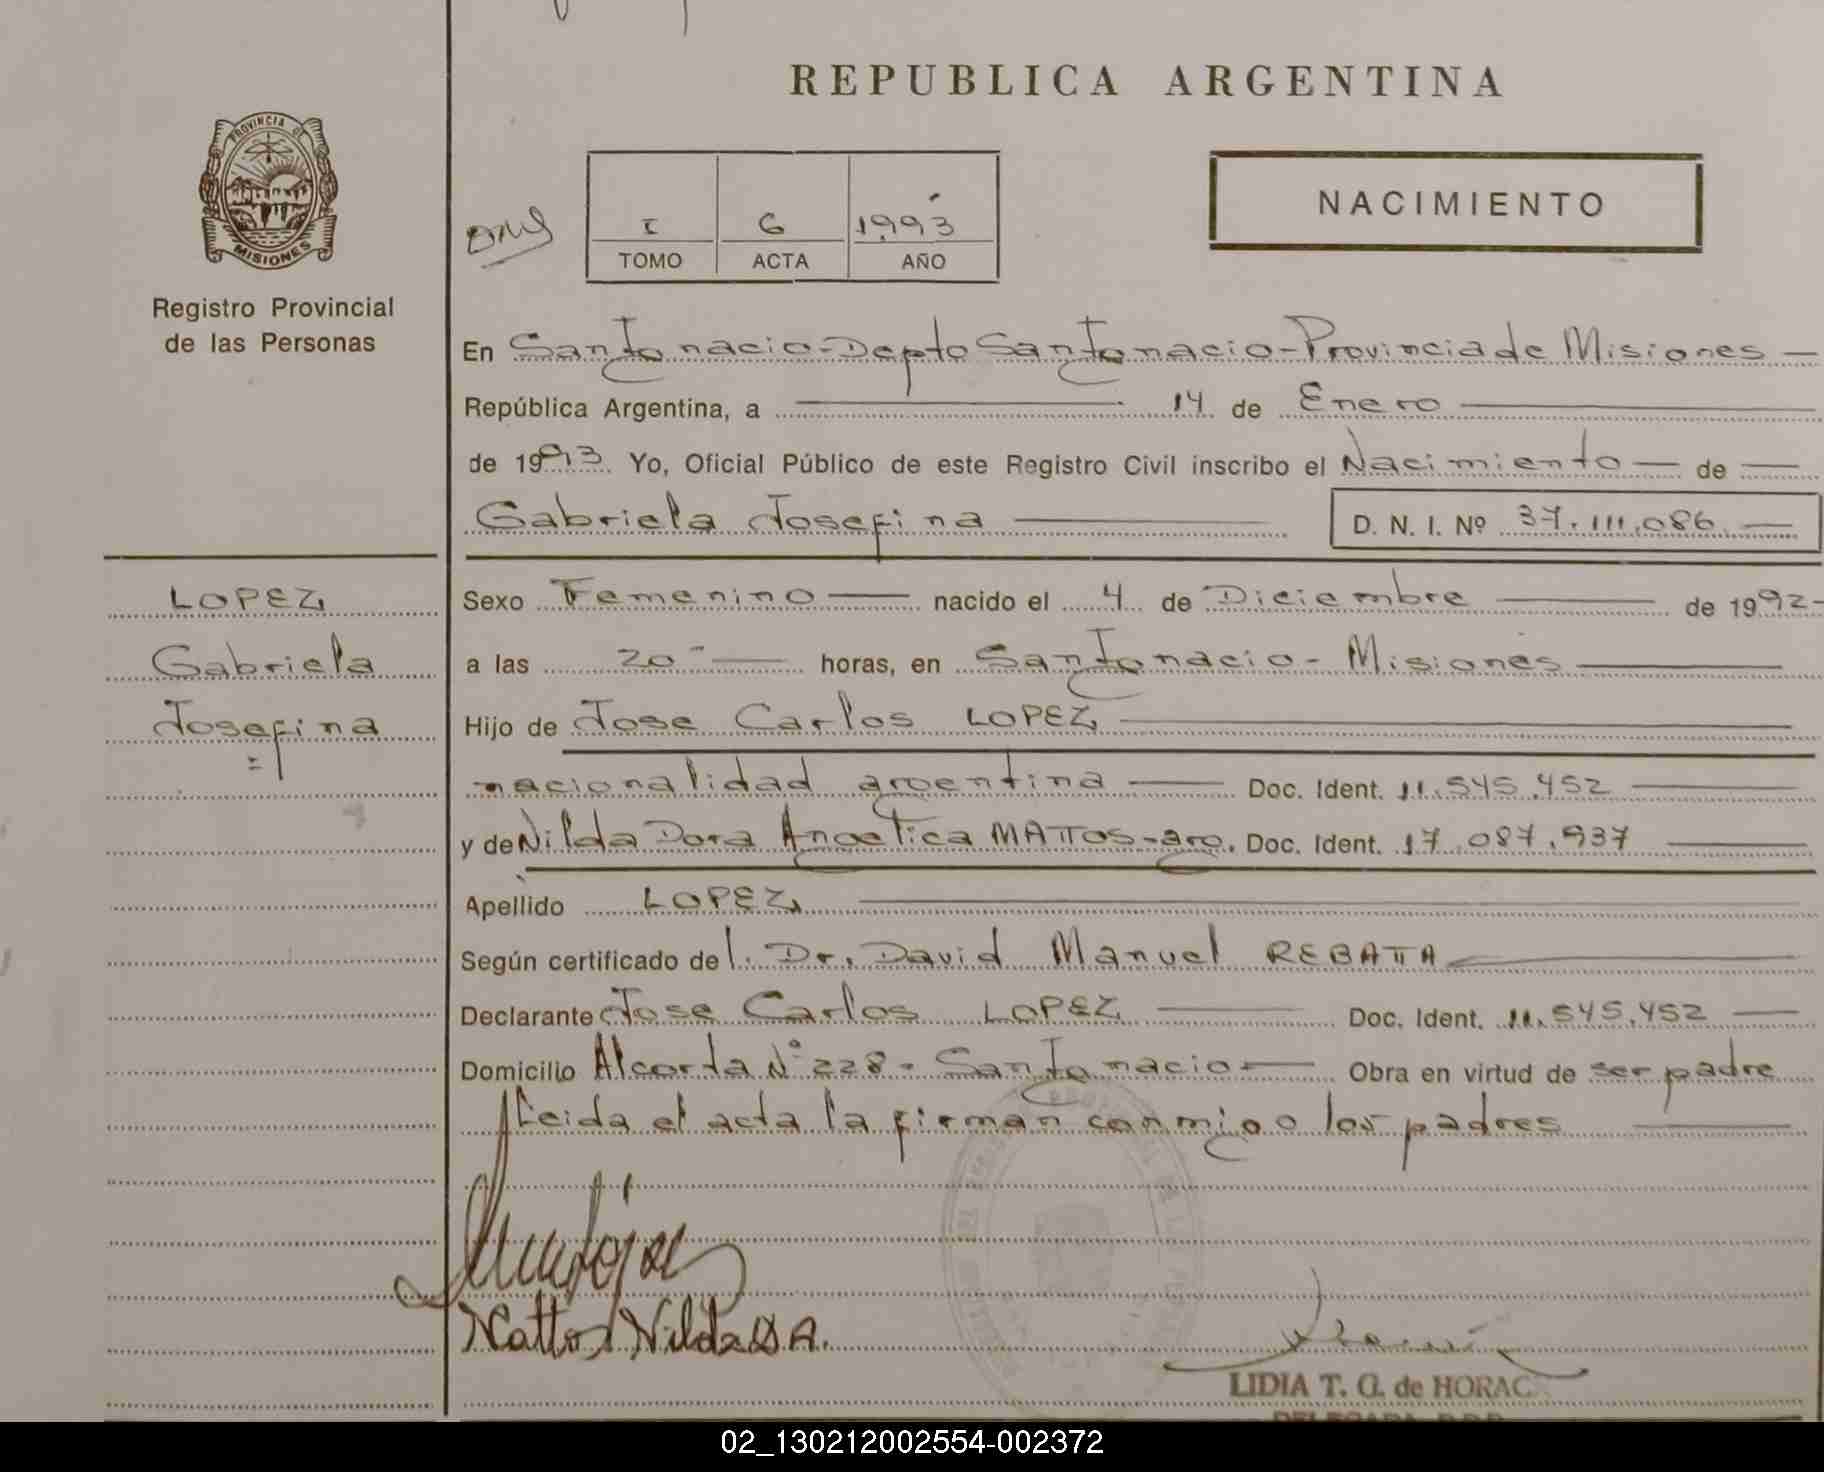 REPUBLICA ARGENTINA
PROVINCIA DE
MISIONES
Registro Provincial
de las Personas
I 6 1993
TOMO ACTA AÑO
NACIMIENTO
En San Ignacio - Depto San Ignacio - Provincia de Misiones —
República Argentina, a — 14 de Enero —
de 1993 Yo, Oficial Público de este Registro Civil inscribo el Nacimiento — de —
Gabriela Josefina — D. N. I. Nº 37.111.086 —
LOPEZ
Gabriela
Josefina
Sexo Femenino — nacido el 4 de Diciembre — de 1992-
a las 20 — horas, en San Ignacio - Misiones —
Hijo de Jose Carlos LOPEZ —
nacionalidad argentina — Doc. Ident. 11.545.452 —
y de Nilda Dora Angelica MATTOS - arg. Doc. Ident. 17.087.937 —
Apellido LOPEZ —
Según certificado del. Dr. David Manuel REBATTA —
Declarante Jose Carlos LOPEZ — Doc. Ident. 11.545.452 —
Domicilio Alcorta Nº 228 - San Ignacio — Obra en virtud de ser padre
Leida el acta la firman conmigo los padres —
Mattos Nilda D A.
LIDIA T. G. de HORAC
02_130212002554-002372